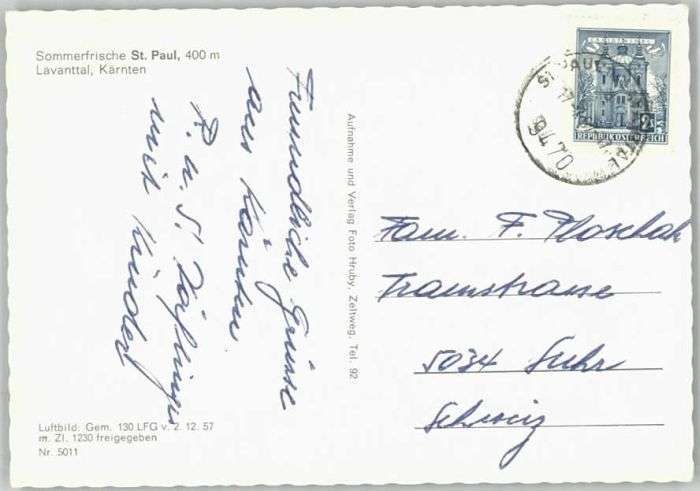 Sommerfrische St. Paul, 400 m
Lavanttal, Kärnten
Freundliche Grüsse
aus Kärnten
P. u. S.
mit Kindern
Aufnahme und Verlag Foto Hruby, Zeltweg, Tel. 92
CHRISTKINDL
REPUBLIK ÖSTERREICH
ST. PAUL
Fam. F. Ploschak
Tramstrasse
5034 Suhr
Schweiz
Luftbild: Gem. 130 LFG v. 2. 12. 57
m. Zl. 1230 freigegeben
Nr. 5011